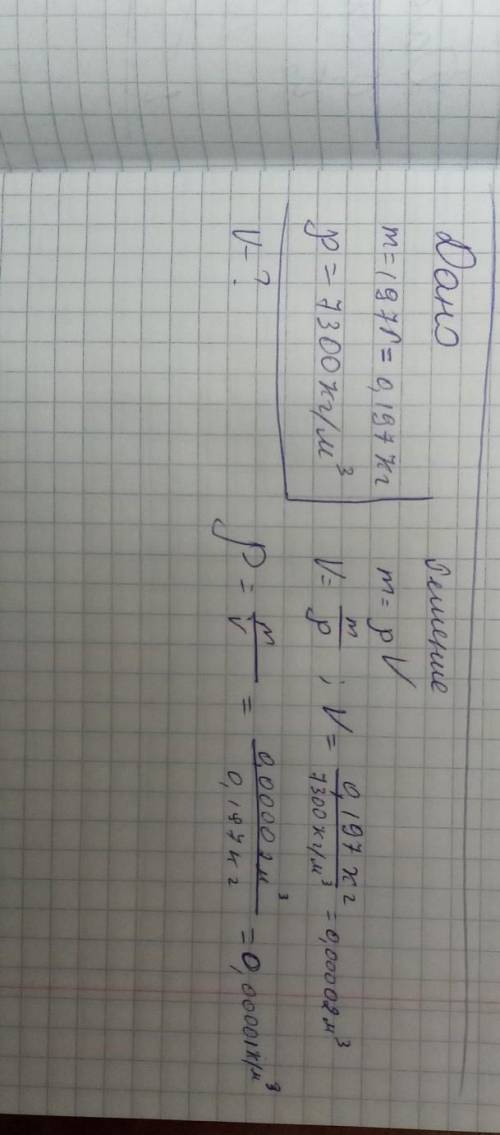 Дано
m = 197г = 0,197 кг
ρ = 7300 кг/м³
V - ?
Решение
m = ρV
V = m/ρ ; V = 0,197 кг / 7300 кг/м³ = 0,00002 м³
ρ = m/V = 0,00002 м³ / 0,197 кг = 0,0001 кг/м³